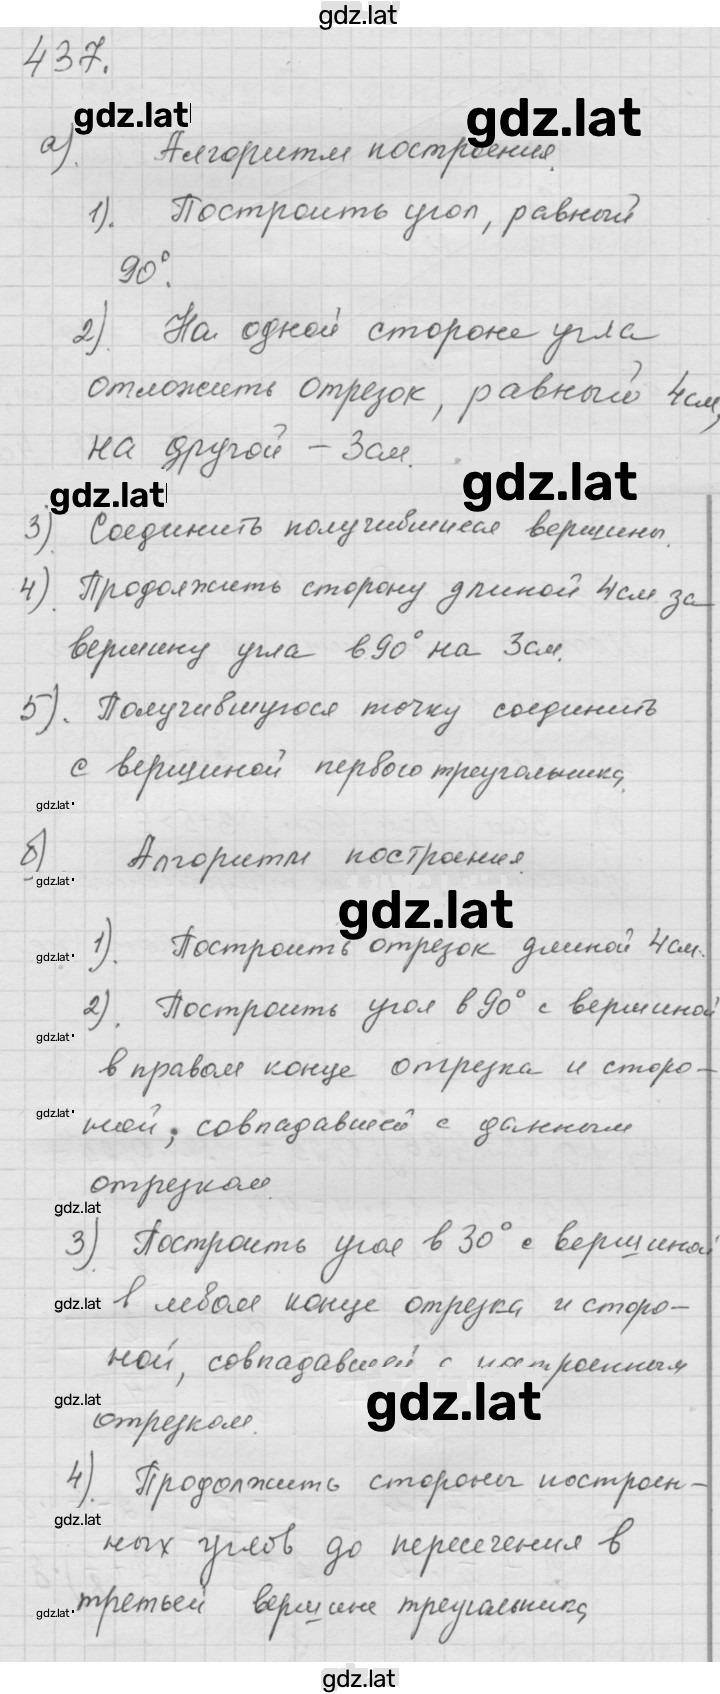 gdz.lat
437.
gdz.lat
gdz.lat
а). Алгоритм построения.
1). Построить угол, равный
90°.
2). На одной стороне угла
отложить отрезок, равный 4см,
на другой – 3см.
gdz.lat
gdz.lat
3). Соединить получившиеся вершины.
4). Продолжить сторону длиной 4см за
вершину угла в 90° на 3см.
5). Получившуюся точку соединить
с вершиной первого треугольника.
gdz.lat
б) Алгоритм построения.
gdz.lat
gdz.lat
1). Построить отрезок длиной 4см.
gdz.lat
2). Построить угол в 90° с вершиной
gdz.lat
в правом конце отрезка и сторо-
gdz.lat
ной, совпадавшей с данным
отрезком.
gdz.lat
3). Построить угол в 30° с вершиной
gdz.lat
в левом конце отрезка и сторо-
ной, совпадавшей с построенным
gdz.lat
gdz.lat
отрезком.
4). Продолжить стороны построен-
gdz.lat
ных углов до пересечения в
gdz.lat
третьей вершине треугольника
gdz.lat